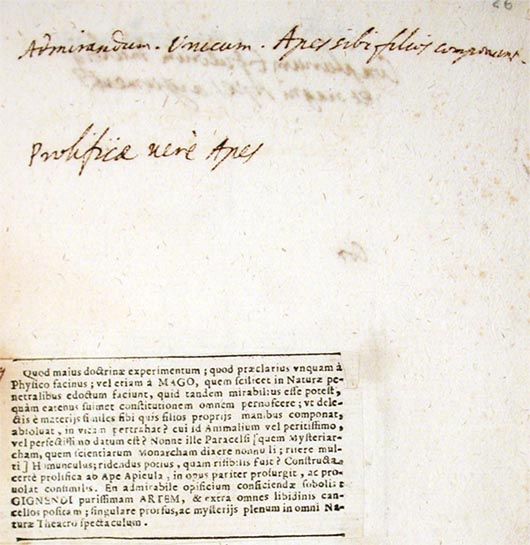 26
Admirandum. Unicum. Apes sibi filios componunt.
Prolificæ verè Apes
Quod maius doctrinæ experimentum; quod præclarius vnquam à
Physico facinus; vel etiam à MAGO, quem scilicet in Naturæ pe-
netralibus edoctum faciunt, quid tandem mirabilius esse potest,
quàm eatenus suimet constitutionem omnem pernoscere; vt dele-
ctis è materijs similes sibi quis filios proprijs manibus componat,
absoluat, in vitam pertrahat? cui id Animalium vel peritissimo,
vel perfectissimo datum est? Nonne ille Paracelsi [quem Mysteriar-
cham, quem scientiarum Monarcham dicere nonnulli; ritere mul-
ti] Homunculus; ridendus potius, quam risibilis fuit? Constructa
certè prolifica ab Ape Apicula, in opus pariter prosurgit, ac pro-
uolat consimilis. En admirabile opificium conficiendæ sobolis:
GIGNENDI purissimam ARTEM, & extra omnes libidinis can-
cellos positam; singulare prorsus, ac mysterijs plenum in omni Na-
turæ Theatro spectaculum.